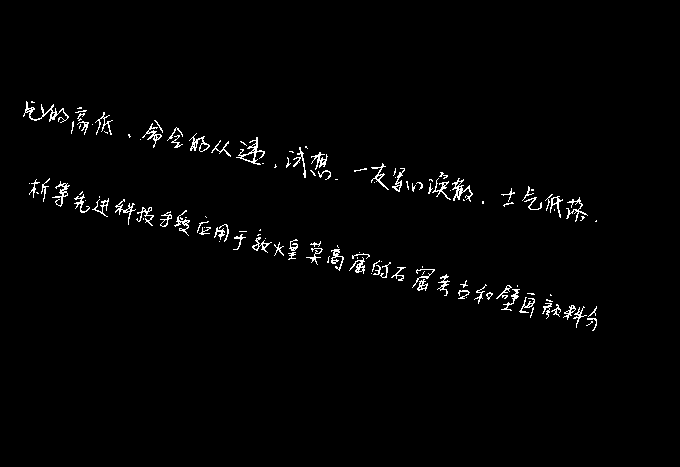 气的高低、命令的从违，试想，一支军心涣散，士气低落，
析等先进科技手段应用于敦煌莫高窟的石窟考古和壁画颜料分